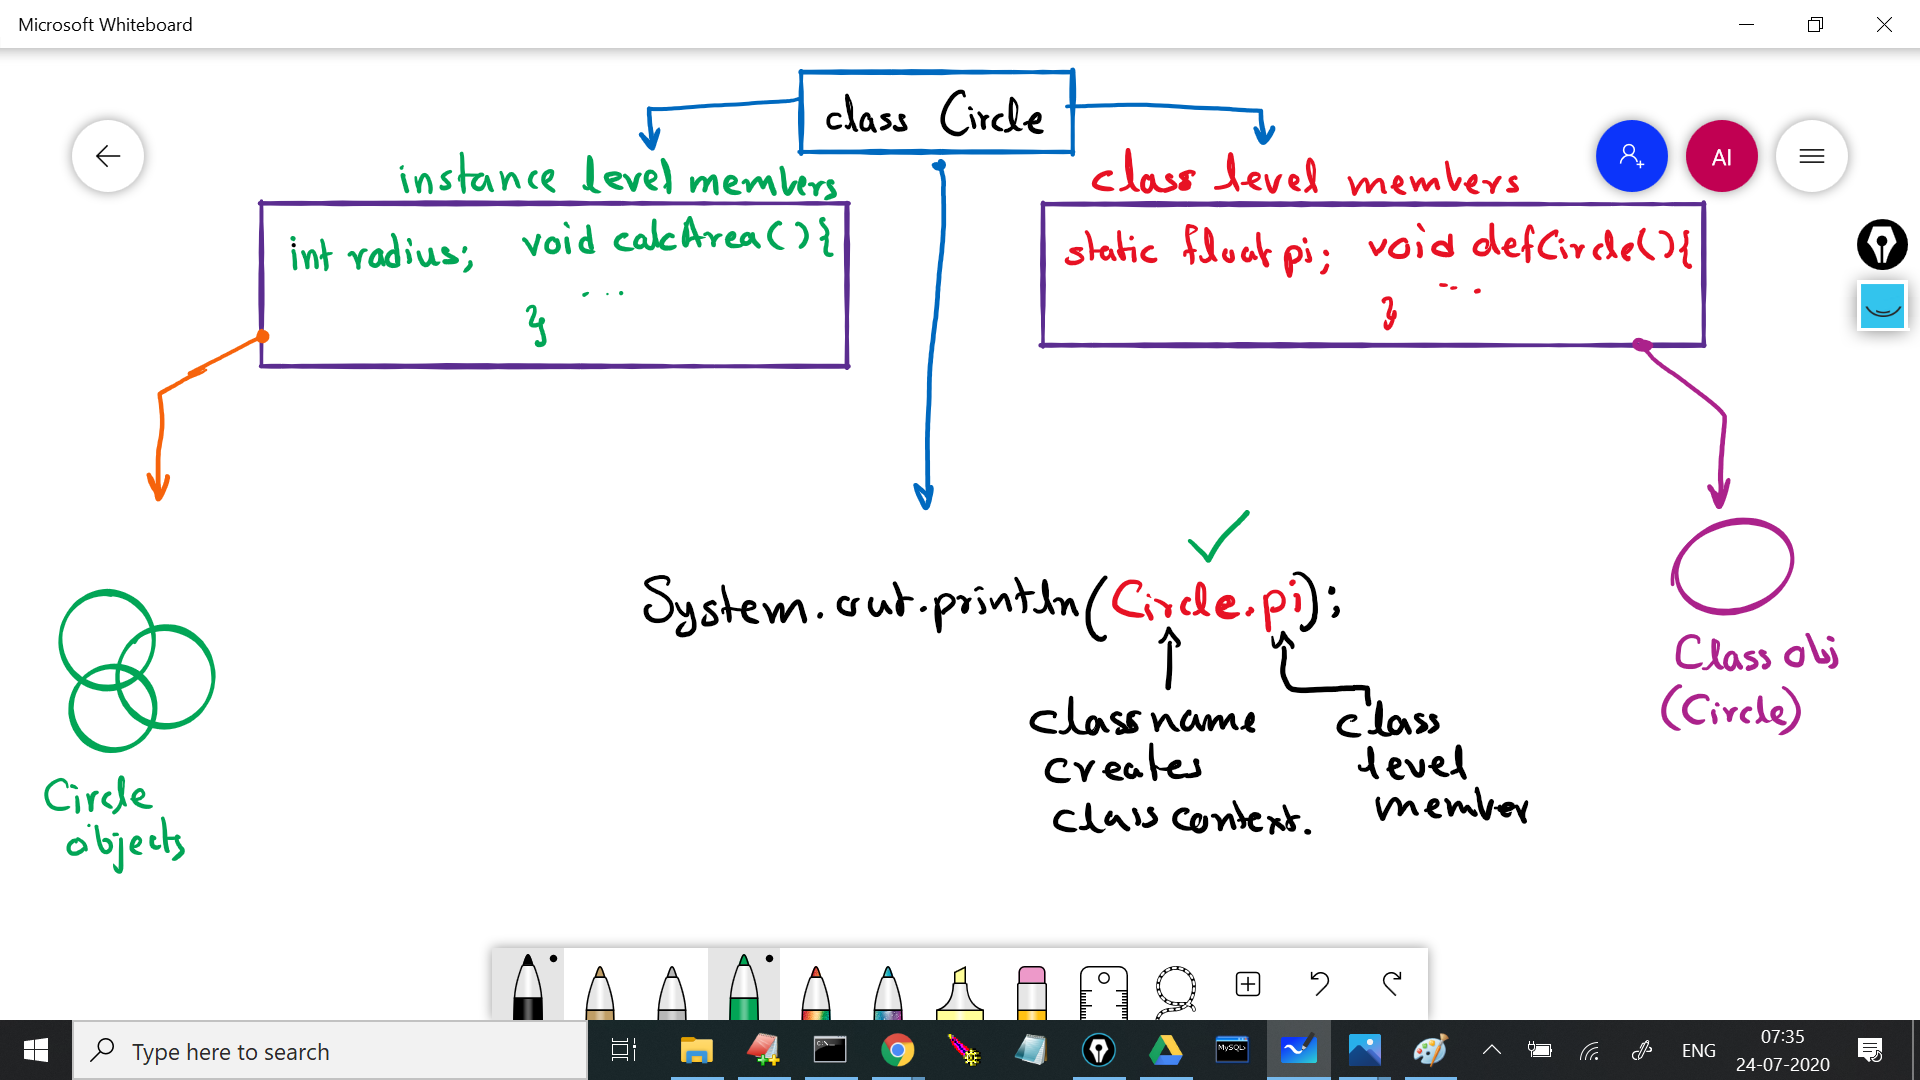 Microsoft Whiteboard
class Circle
AI
instance level members
class level members
int radius; void calcArea(){
...
}
static float pi; void defCircle(){
...
}
System.out.println(Circle.pi);
class name
creates
class context.
class
level
member
Class obj
(Circle)
Circle
objects
Type here to search
MySQL
ENG
07:35
24-07-2020